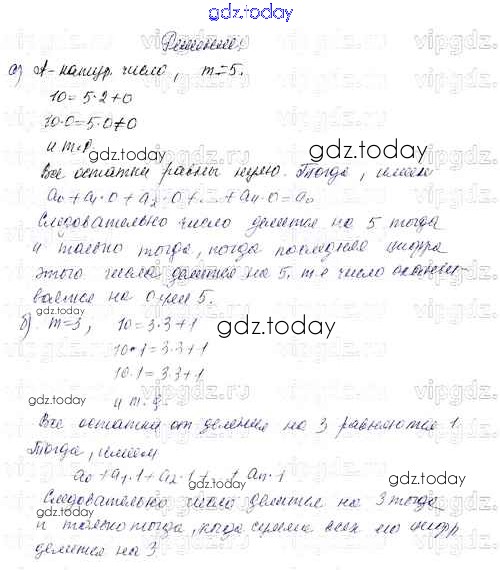 gdz.today
Решение:
а) А-натур. число, m=5.
10=5·2+0
10·0=5·0+0
и т.д.
gdz.today
Все остатки равны нулю. Тогда, имеем
a₀+a₁·0+a₂·0+...+aₙ·0=a₀
Следовательно число делится на 5 тогда
и только тогда, когда последняя цифра
этого числа делится на 5, т.е число оканчи-
вается на 0 или 5.
б) m=3, 10=3·3+1
gdz.today
10·1=3·3+1
10·1=3·3+1
gdz.today
и т.д.
Все остатки от деления на 3 равняются 1.
Тогда, имеем
a₀+a₁·1+a₂·1+...+aₙ·1
gdz.today
Следовательно число делится на 3 тогда
gdz.today
и только тогда, когда сумма всех его цифр
делится на 3.